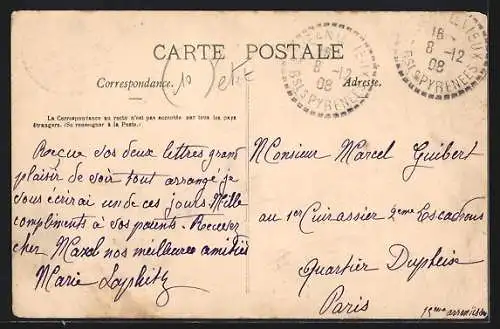 CARTE POSTALE
Correspondance.
Adresse.
La Correspondance au recto n'est pas acceptée par tous les pays
étrangers. (Se renseigner à la Poste.)
16
8 -12
08
BSES PYRENEES
16
8 -12
08
BSES PYRENEES
Reçue vos deux lettres grand
plaisir de voir tout arrangé je
vous écrirai un de ces jours Mille
compliments à vos parents. Recevez
cher Marcel nos meilleures amitiés
Marie Laphitz
Monsieur Marcel Guibert
au 1er Cuirassier 2eme Escadrons
Quartier Dupleix
Paris
15eme